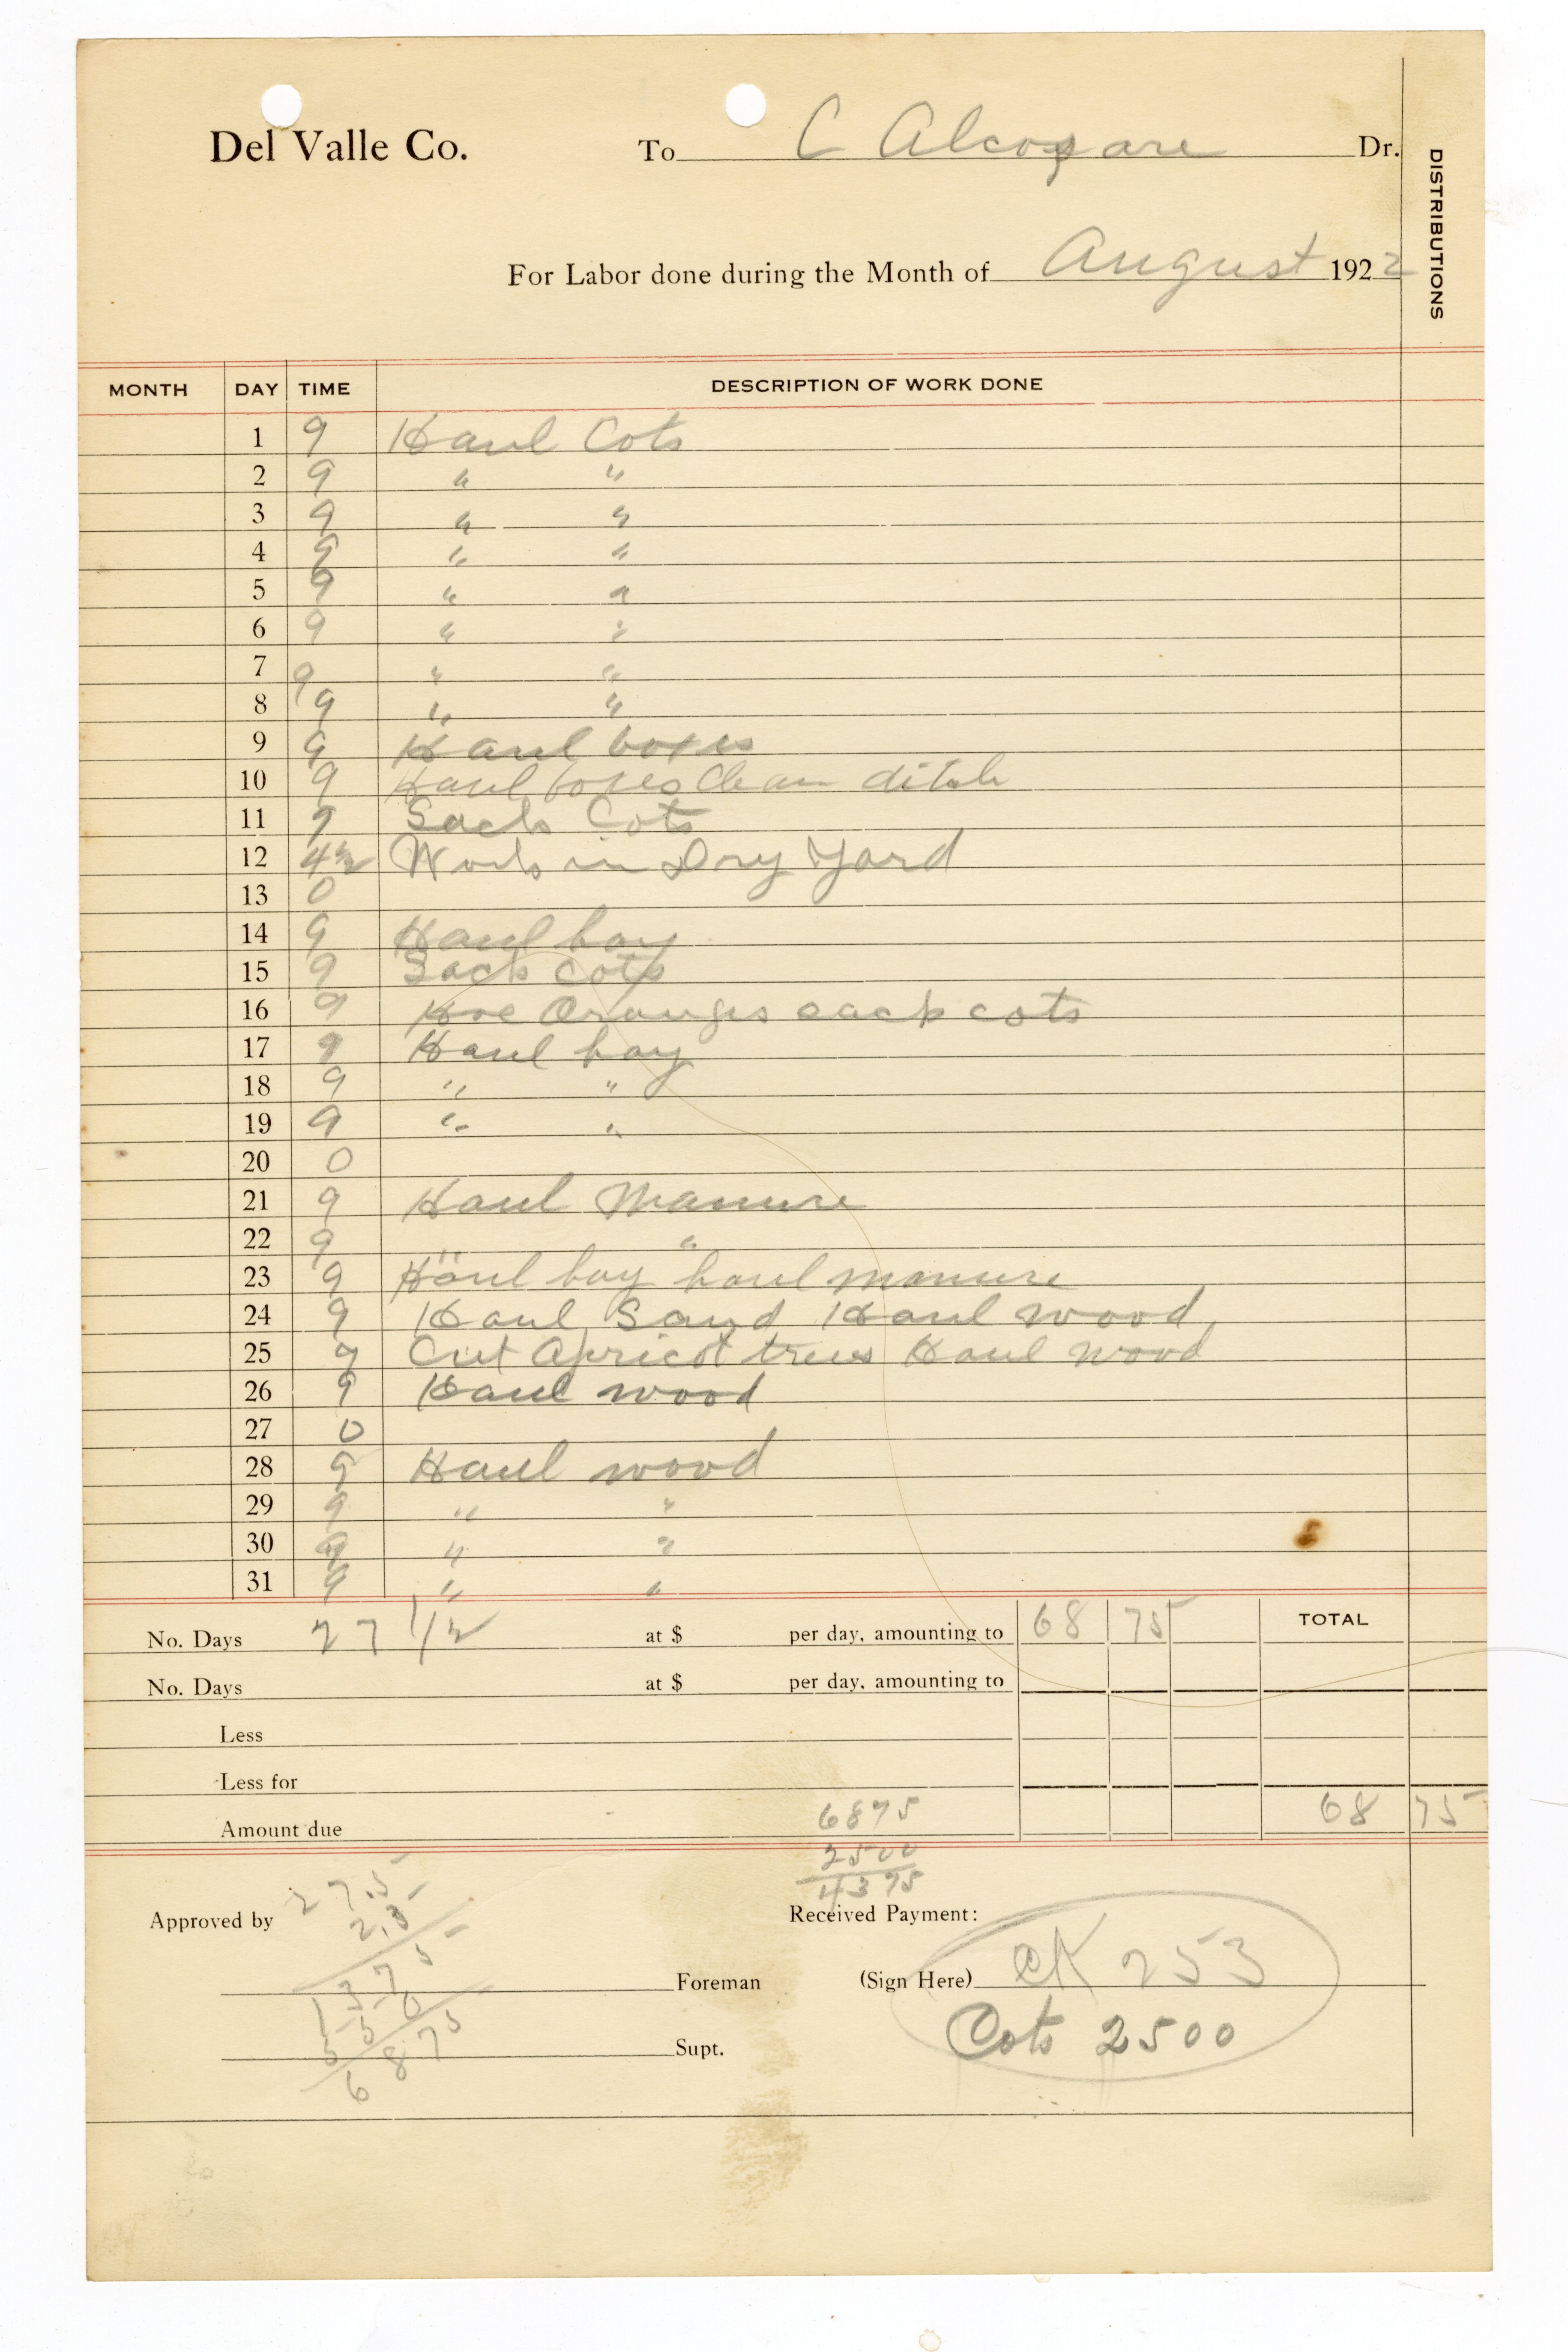 Del Valle Co. To C Dr.
For Labor done during the Month of August 1922
DISTRIBUTIONS
MONTH DAY TIME DESCRIPTION OF WORK DONE
1 9 Haul Cots
2 9 " "
3 9 " "
4 9 " "
5 9 " "
6 9 " "
7 9 " "
8 9 " "
9 9 Haul boxes
10 9 Haul boxes Clean ditch
11 9 Sack Cots
12 4 1/2 Work in Dry Yard
13 0
14 9 Haul hay
15 9 Sack cots
16 9 Hoe Oranges sack cots
17 9 Haul hay
18 9 " "
19 9 " "
20 0
21 9 Haul Manure
22 9 " "
23 9 Haul hay haul manure
24 9 Haul Sand Haul wood
25 9 Cut Apricot trees Haul wood
26 9 Haul wood
27 0
28 9 Haul wood
29 9 " "
30 9 " "
31 9 " "
No. Days 27 1/2 at $ per day, amounting to 68 75 TOTAL
No. Days at $ per day, amounting to
Less
Less for
Amount due 6875 68 75
2500
4375
27.5
2.5
1375
550
6875
Approved by Received Payment:
Foreman (Sign Here) CK 253
Supt. Cots 2500